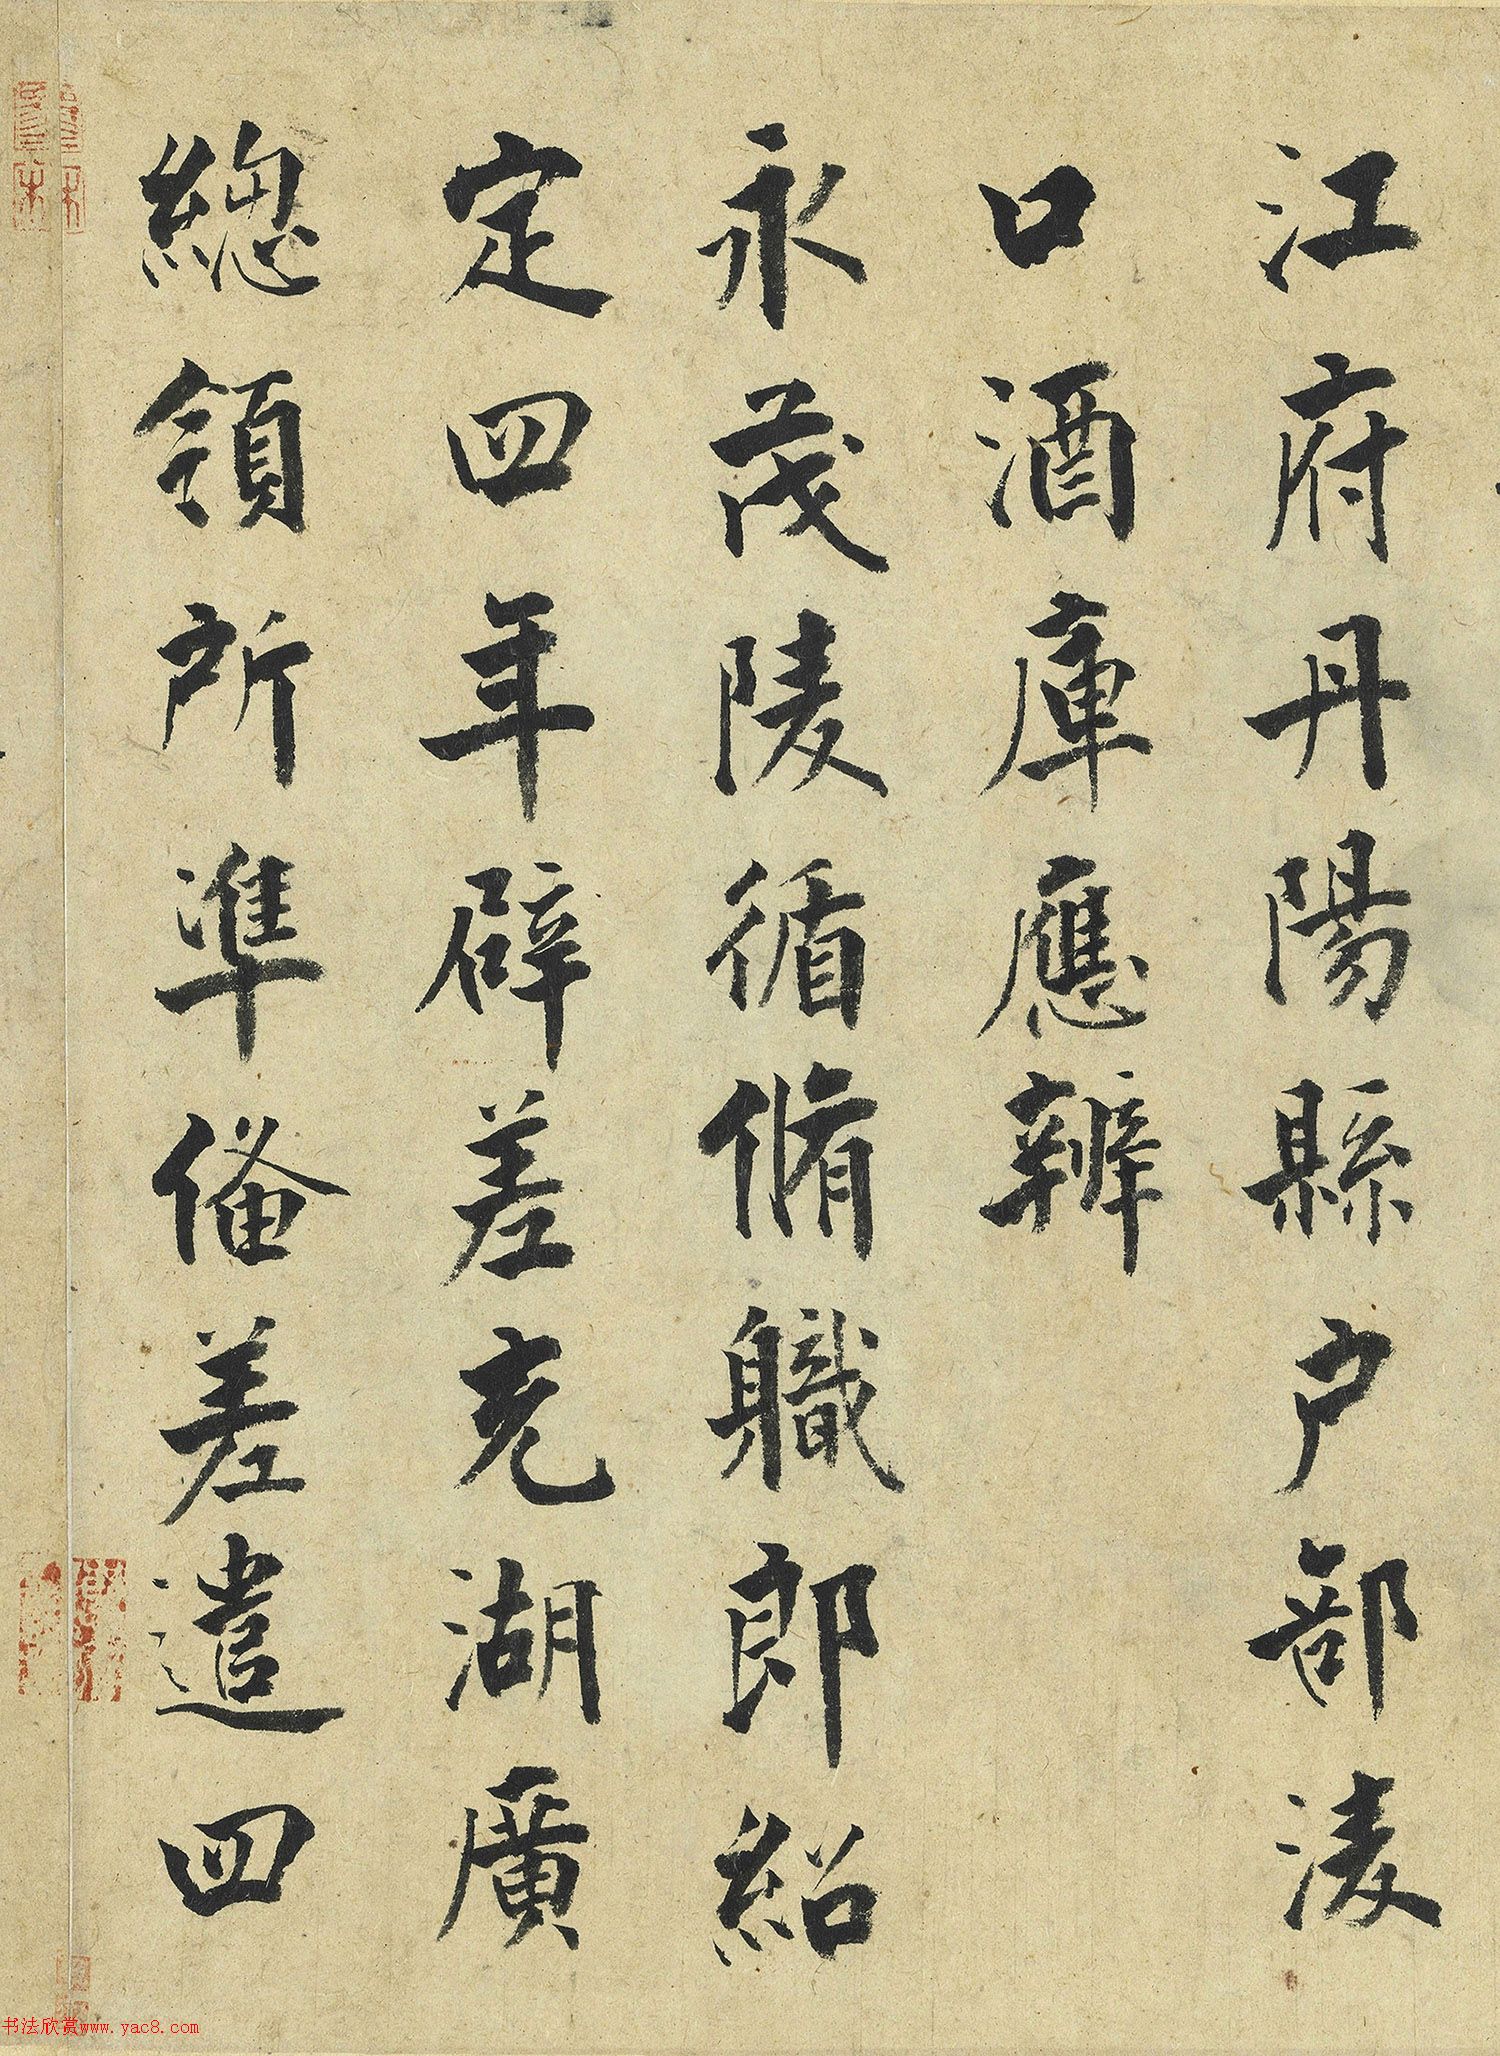 江府丹陽縣户部淩
口酒庫應辦
永茂陵循脩職郎紹
定四年辟差充湖廣
總領所準俻差遣四
书法欣赏www.yac8.com